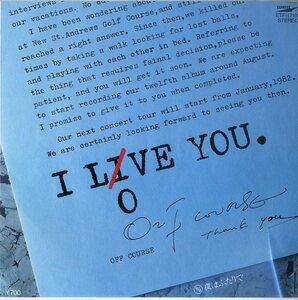 interviews
our vacations. No
I have been wondering about
at New St.Andrews Golf Course, and still
reached a right answer. Since then, we killed our
times by taking a walk looking for lost balls,
and playing with each other in bed. Referring to
the thing that requires fainal decision, please be
patient, and you will get it soon. We are expecting
to start recording our twelfth album around August.
I promise to give it to you when completed.
Our next concert tour will start from January, 1982.
We are certainly looking forward to seeing you then.
I LIVE YOU.
O
OFF COURSE
Thank you
OFF COURSE
¥700
夜はふたりで
EXPRESS
STEREO